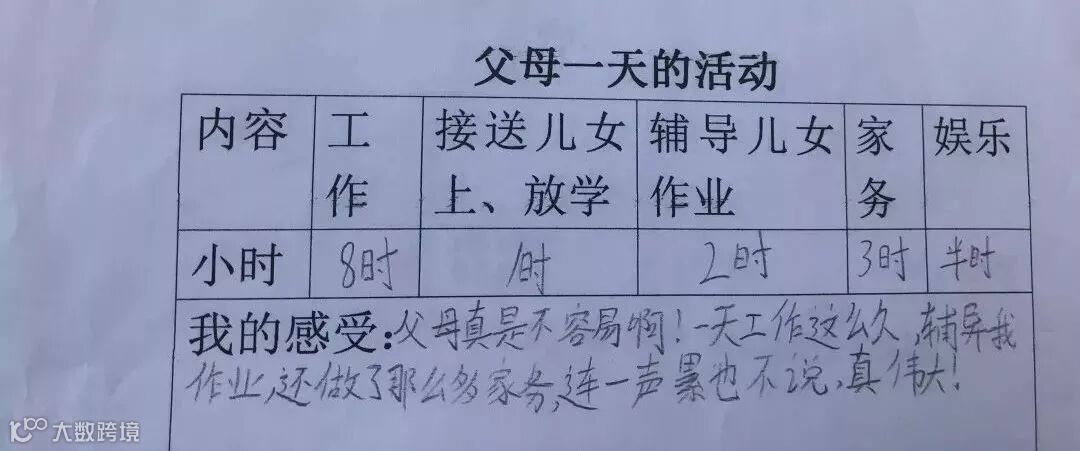 父母一天的活动
内容 工作 接送儿女上、放学 辅导儿女作业 家务 娱乐
小时 8时 1时 2时 3时 半时
我的感受:父母真是不容易啊!一天工作这么久,辅导我
作业,还做了那么多家务,连一声累也不说,真伟大!
大数跨境